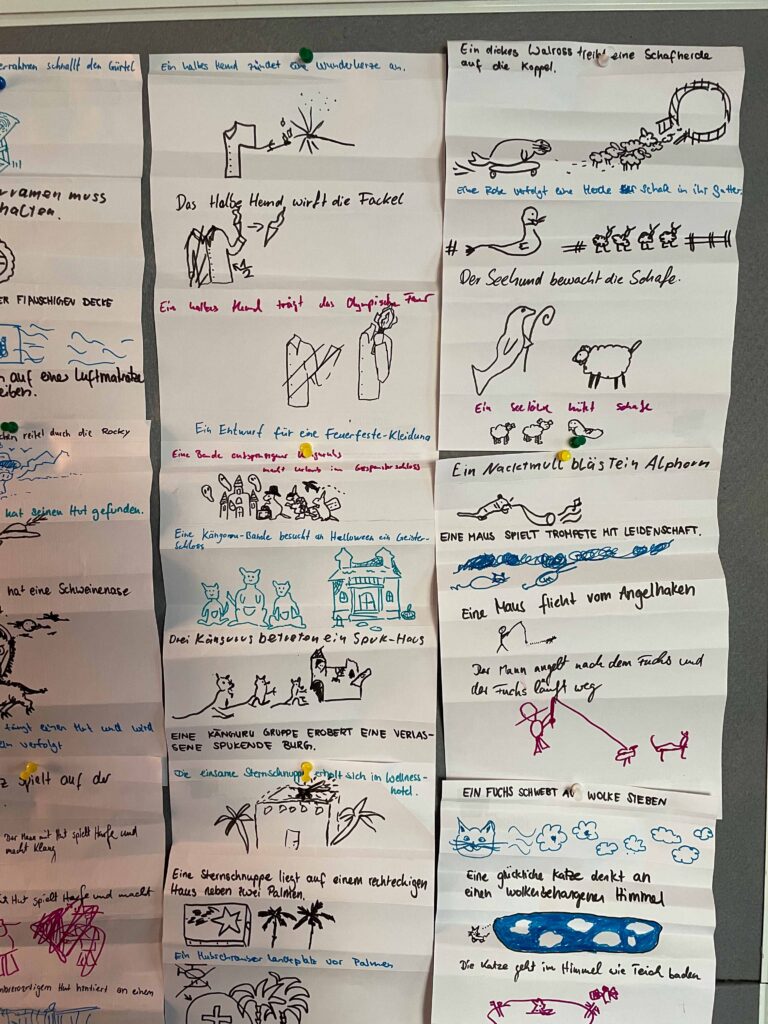 schnallt den Gürtel
muss
FLAUSCHIGEN DECKE
auf einer Luftmatratze
reitet durch die Rocky
hat seinen Hut gefunden.
hat eine Schweinenase
fängt einen Hut und wird
verfolgt
spielt auf der
Der Mann mit Hut spielt Harfe und
macht Klang
Hut spielt Harfe und macht
Hut hantiert an einem
Ein halbes Hemd zündet eine Wunderkerze an.
Das Halbe Hemd wirft die Fackel
1/2
Ein halbes Hemd trägt das Olympische Feuer
Ein Entwurf für eine Feuerfeste-Kleidung
Eine Bande entspannter Kängurus
macht Urlaub im Gespensterschloss
Eine Känguru-Bande besucht an Halloween ein Geister-
schloss
Drei Kängurus betreten ein Spuk-Haus
EINE KÄNGURU GRUPPE EROBERT EINE VERLAS-
SENE SPUKENDE BURG.
Die einsame Sternschnuppe erholt sich im Wellness-
hotel.
Eine Sternschnuppe liegt auf einem rechteckigen
Haus neben zwei Palmen.
Ein Hubschrauber Landeplatz vor Palmen
Ein dickes Walross treibt eine Schafherde
auf die Koppel.
Eine Robe verfolgt eine Herde Schafe in ihr Gatter.
Der Seehund bewacht die Schafe.
Ein Seelöwe hütet Schafe
Ein Nacktmull bläst ein Alphorn
EINE MAUS SPIELT TROMPETE MIT LEIDENSCHAFT.
Eine Maus flieht vom Angelhaken
Der Mann angelt nach dem Fuchs und
der Fuchs läuft weg
EIN FUCHS SCHWEBT AUF WOLKE SIEBEN
Eine glückliche Katze denkt an
einen wolkenbehangenen Himmel
Die Katze geht im Himmel wie Teich baden